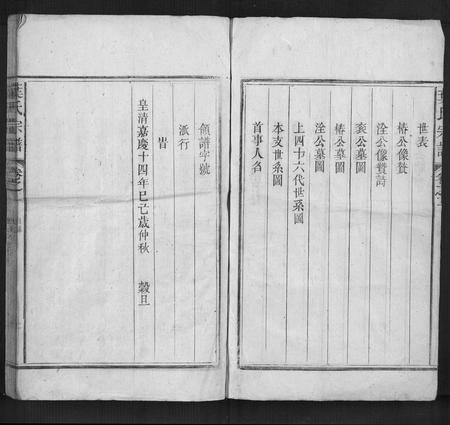 世表
椿公像贊
淦公像贊詩
袞公墓圖
椿公墓圖
淦公墓圖
上四十六代世系圖
本支世系圖
首事人名
領譜字號
派行
旹
皇清嘉慶十四年巳亡歲仲秋 穀旦
葉氏宗譜